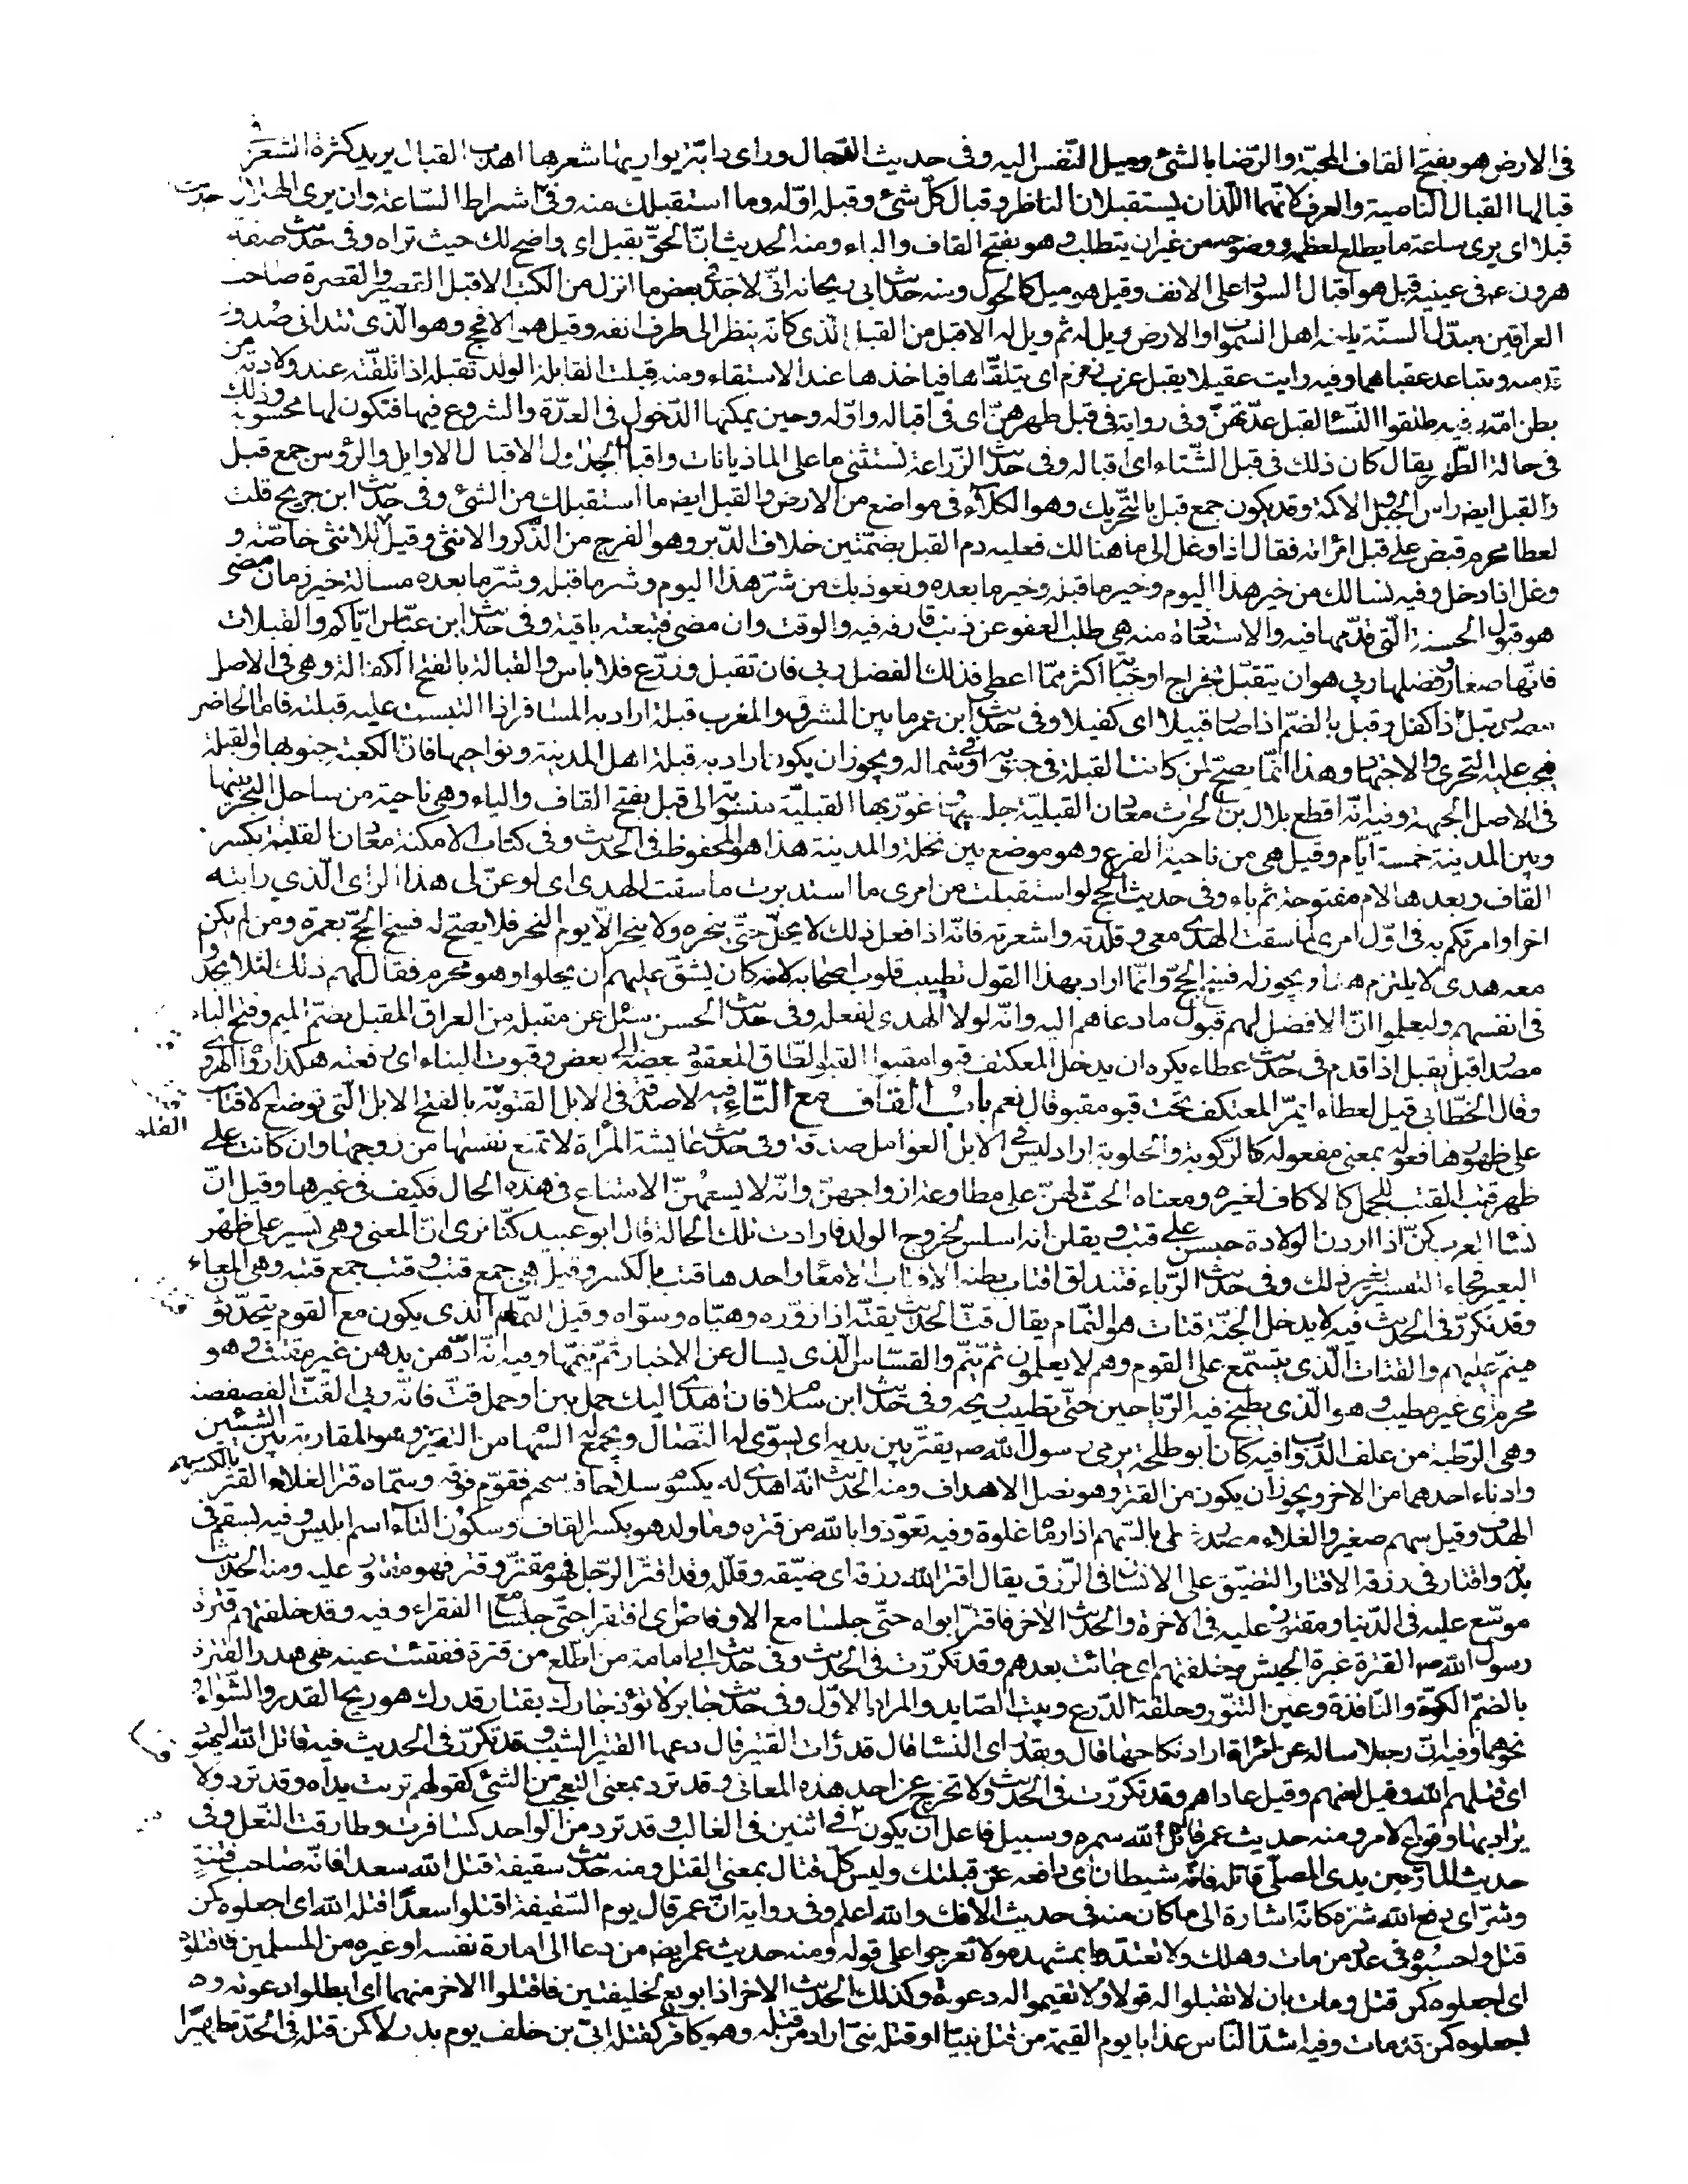 فى الارض هو بفتح القاف المحبّة والرّضا بالشئ وميل النّفس اليه وفى حديث الدّجال وراى دابّة يواريها شعرها اهدب القبال يريد كثرة الشعر فى
قبالها القبال الناصية والعرف لانّهما اللّذان يستقبلان الناظر وقبال كلّ شئ وقبله اوّله وما استقبلك منه وفى اشراط السّاعة وان يرى الهلال
قبلا اى يرى ساعة ما يطلع لعظمه ووضوحه من غير ان يتطلب وهو بفتح القاف والباء ومنه الحديث انّ الحقّ بقبل اى واضح لك حيث تراه وفى حديث صفة
هرون ع فى عينيه قبل هو اقبال السواد على الانف وقيل هو ميل كالحول ومنه حديث ابى ريحانة انّى لاجد فى بعض ما انزل من الكتب الاقبل القصير القصرة صاحب
العراقين مبدّل السنّة يلعنه اهل السموات والارض ويل له ثم ويل له الاقبل من القبل الّذى كانّه ينظر الى طرف انفه وقيل هو الافحج وهو الّذى تتدانى صدور
قدميه ويتباعد عقباهما وفيه رايت عقيلا يقبل غرب زمزم اى يتلقّاها فياخذها عند الاستقاء ومنه قبلت القابلة الولد تقبله اذا تلقّته عند ولادته من
بطن امّه وفيه طلقوا النّساء لقبل عدّتهنّ وفى رواية فى قبل طهرهنّ اى فى اقباله واوّله وحين يمكنها الدّخول فى العدّة والشروع فيها فتكون لها محسوبة وذلك
فى حالة الطّهر يقال كان ذلك فى قبل الشّتاء اى اقباله وفى حديث الزّراعة نستثنى ما على الماذيانات واقبال الجداول الاقبال الاوايل والرؤس جمع قبل
والقبل ايضا راس الجبل والاكمة وقد يكون جمع قبل بالتّحريك وهو الكلاء فى مواضع من الارض والقبل ايضا ما استقبلك من الشئ وفى حديث ابن جريج قلت
لعطا محرم قبض على قبل امراته فقال اذا وغل الى ما هنالك فعليه دم القبل بضمّتين خلاف الدّبر وهو الفرج من الذّكر والانثى وقيل للانثى خاصّة و
وغل اذا دخل وفيه نسالك من خير هذا اليوم وخير ما قبله وخير ما بعده ونعوذ بك من شرّ هذا اليوم وشر ما قبله وشرّ ما بعده مسالة خير زمان مضى
هو قبول الحسنة الّتى قدّمها فيه والاستعاذة منه هى طلب العفو عن ذنب قارفه فيه والوقت وان مضى فتبعته باقية وفى حديث ابن عبّاس ايّاكم والقبالات
فانّها صغار وفضلها ربى هو ان يتقبّل بخراج او جباية اكثر ممّا اعطى فذلك الفضل ربى فان تقبل وزرع فلا باس والقبالة بالفتح الكفالة وهى فى الاصل
مصدر قبل اذا كفل وقبل بالضمّ اذا صار قبيلا اى كفيلا وفى حديث ابن عمر ما بين المشرق والمغرب قبلة اراد به المسافر اذا التبست عليه قبلته فاما الحاضر
فيجب عليه التحرى والاجتهاد وهذا انّما يصحّ لمن كانت القبلة فى جنوبه او شماله ويجوز ان يكون اراد به قبلة اهل المدينة ونواحيها فانّ الكعبة جنوبها والقبلة
فى الاصل الجهة وفيه انّه اقطع بلال بن الحرث معادن القبليّة جلسيّها وغوريّها القبليّة منسوبة الى قبل بفتح القاف والباء وهى ناحية من ساحل البحر بينها
وبين المدينة خمسة ايّام وقيل هى من ناحية الفرع وهو موضع بين نخلة والمدينة هذا هو المحفوظ فى الحديث وفى كتاب الامكنة معادن القلبة بكسر
القاف وبعدها لام مفتوحة ثم باء وفى حديث الحج لو استقبلت من امرى ما استدبرت ما سقت الهدى اى لو عنّ لى هذا الراى الّذى رايته
اخرا وامرتكم به فى اوّل امرى لما سقت الهدى معى وقلّدته واشعرته فانّه اذا فعل ذلك لا يحلّ حتّى ينحره ولا ينحر الّا يوم النحر فلا يصحّ له فسخ الحجّ بعمرة ومن لم يكن
معه هدى لا يلتزم هذا ويجوز له فسخ الحجّ وانّما اراد بهذا القول تطييب قلوب اصحابه لانّه كان يشقّ عليهم ان يحلوا وهو محرم فقال لهم ذلك لئلا يجدوا
فى انفسهم وليعلموا انّ الافضل لهم قبول ما دعاهم اليه وانّه لولا الهدى لفعله وفى حديث الحسن سئل عن مقبله من العراق المقبل بضمّ الميم وفتح الباء
مصدر اقبل يقبل اذا قدم فى حديث عطاء يكره ان يدخل المعتكف قبوا مقبوا القبو الطّاق المعقود بعضه الى بعض وقبوت البناء اى رفعته هكذا رواه الهروى
وقال الخطّابى قيل لعطاء ايمرّ المعتكف تحت قبو مقبو قال نعم باب القاف مع التّاء فيه لا صدقة فى الابل القتوبة بالفتح الابل الّتى توضع الاقتاب
على ظهورها فعولة بمعنى مفعولة كالرّكوبة والحلوبة اراد ليس فى الابل العوامل صدقة وفى حديث عايشة لا تمنع المرأة نفسها من زوجها وان كانت على
ظهر قتب القتب للجمل كالاكاف لغيره ومعناه الحثّ لهنّ على مطاوعة ازواجهنّ وانّه لا يسعهنّ الامتناع فى هذه الحال فكيف فى غيرها وقيل انّ
نساء العرب كنّ اذا اردن الولادة جلسن على قتب ويقلن انه اسلس لخروج الولد فارادت تلك الحالة قال ابو عبيد كنّا نرى انّ المعنى وهى تسير على ظهر
البعير فجاء التفسير بغير ذلك وفى حديث الرّباء فتندلق اقتاب بطنه الاقتاب الامعاء واحدها قتب بالكسر وقيل هى جمع قتب وقتب جمع قتبة وهى المعاء
وقد تكرّر فى الحديث فيه لا يدخل الجنّة قتات هو النّمام يقال قتّ الحديث يقتّه اذا زوّره وهيّاه وسوّاه وقيل النمّام الّذى يكون مع القوم يتحدّثون
فينمّ عليهم والقتات الّذى يتسمّع على القوم وهم لا يعلمون ثمّ ينمّ والقسّاس الّذى يسال عن الاخبار ثمّ ينمّها وفيه انّه ادّهن بدهن غير مقتّت وهو
محرم اى غير مطيب وهو الّذى يطبخ فيه الرّياحين حتّى تطيب ريحه وفى حديث ابن سلام فان اهدى اليك حمل تبن او حمل قتّ فانّه ربى القتّ الفصفصة
وهى الرّطبة من علف الدّواب فيه كان ابو طلحة يرمى ورسول الله ص يقتّر بين يديه اى يسوّى له النّصال ويجمع له السّهام من التقتير وهو المقاربة بين الشيئين
وادناء احدهما من الاخر ويجوز ان يكون من القتر وهو نصل الاهداف ومنه الحديث انّه اهدى له يكسوم سلاحا فيه سهم فقوّم فوقه وسمّاه قتر الغلاء القتر بالكسر سهم
الهدف وقيل سهم صغير والغلاء مصدر غالى بالسّهم اذا رماه غلوة وفيه تعوّذوا بالله من قترة وما ولد هو بكسر القاف وسكون التاء اسم ابليس وفيه بسقم فى
بدنه واقتار فى رزقه الاقتار التضييق على الانسان فى الرّزق يقال اقتر الله رزقه اى ضيّقه وقلّله وقد اقتر الرّجل فهو مقتر وقتر فهو مقتور عليه ومنه الحديث
موسّع عليه فى الدّنيا ومقتور عليه فى الاخرة والحديث الاخر فاقتر ابواه حتّى جلسا مع الاوفاض اى افتقرا حتّى جلسا مع الفقراء وفيه وقد خلفتهم قترة
رسول الله ص القترة غبرة الجيش وخلفتهم اى جائت بعدهم وقد تكرّرت فى الحديث وفى حديث ابى امامة من اطّلع من قترة ففقئت عينه فهى هدر القترة
بالضمّ الكوّة والنّافذة وعين التنّور وحلقة الدّرع وبيت الصّايد والمراد الاوّل وفى حديث جابر لا تؤذ جارك بقتار قدرك هو ريح القدر والشّواء و
نحوهما وفيه انّ رجلا ساله عن امرأة اراد نكاحها قال وبقدر اى النّساء قال قد رأت القتير قال دعها القتير الشيب وقد تكرّر فى الحديث فيه قاتل الله اليهود
اى قتلهم الله وقيل لعنهم وقيل عاداهم وقد تكرّرت فى الحديث ولا تخرج عن احد هذه المعانى وقد ترد بمعنى التعجب من الشئ كقولهم تربت يداه وقد ترد ولا
يراد بها وقوع الامر ومنه حديث عمر قاتل الله سمره وسبيل فاعل ان يكون فى اثنين فى الغالب وقد ترد من الواحد كسافرت وطارقت النّعل وفى
حديث المارّ بين يدى المصلّى قاتله فانّه شيطان اى دافعه عن قبلتك وليس كلّ قتال بمعنى القتل ومنه حديث سقيفة قتل الله سعدا فانّه صاحب فتنة
وشرّ اى دفع الله شرّه كانّه اشارة الى ما كان منه فى حديث الافك والله اعلم وفى رواية انّ عمر قال يوم السّقيفة اقتلوا سعدًا قتله الله اى اجعلوه كمن
قتل واحسبوه فى عداد من مات وهلك ولا تعتدّوا بمشهده ولا تعرجوا على قوله ومنه حديث عمر ايضا من دعا الى امارة نفسه او غيره من المسلمين فاقتلوه
اى اجعلوه كمن قتل ومات بان لا تقبلوا له قولا ولا تقيموا له دعوة وكذلك الحديث الاخر اذا بويع لخليفتين فاقتلوا الاخر منهما اى ابطلوا دعوته و
اجعلوه كمن قد مات وفيه اشدّ النّاس عذابا يوم القيمة من قتل نبيّا او قتله نبىّ اراد من قتله وهو كافر كقتله ابىّ بن خلف يوم بدر لا كمن قتله فى الحدّ تطهيرًا